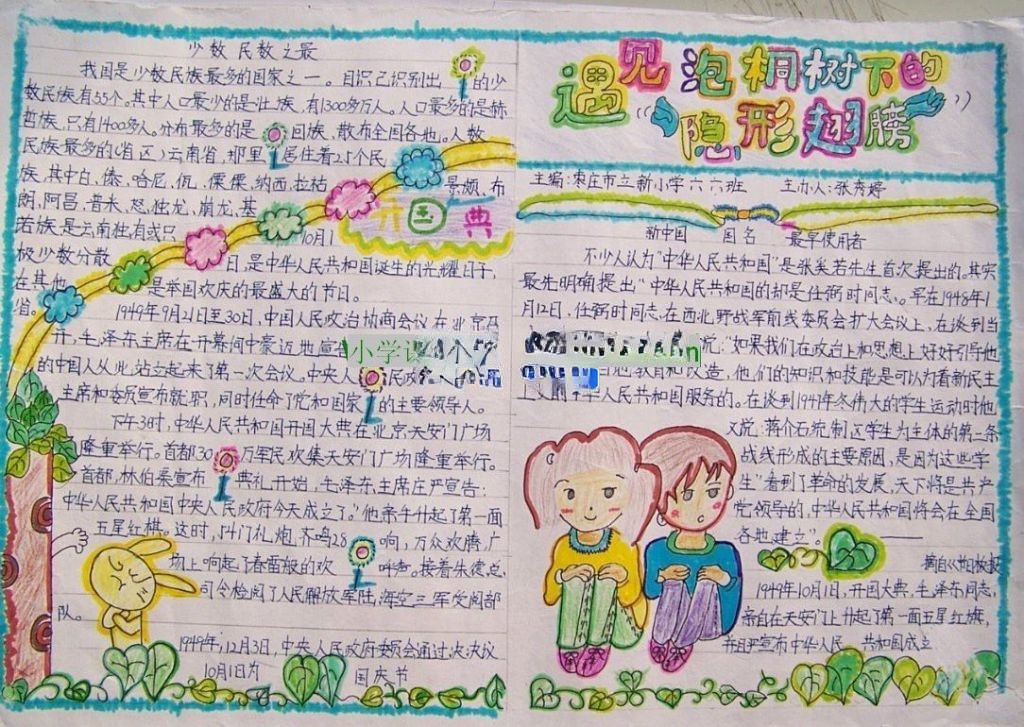 少数民族之最
我国是少数民族最多的国家之一。目识己识别出的少
数民族有55个。其中人口最少的是壮族,有1300多万人。人口最多的是赫
哲族,只有1400多人。分布最多的是回族、散布全国各地。人数
民族最多的(省区)云南省,那里居住着25个民
族,其中白、傣、哈尼、佤、傈僳、纳西、拉祜景颇、布
朗、阿昌、普米、怒、独龙、崩龙、基
若族是云南独有或只
极少数分散
在其他
省。
开国大典
10月1
日,是中华人民共和国诞生的光耀日子,
是举国欢庆的最盛大的节日。
1949年9月21日至30日,中国人民政治协商会议在北京召
开,毛泽东主席在开幕间中豪迈地宣
的中国人从此站立起来了第一次会议。中央人民政
主席和委员宣布就职,同时任命了党和国家的主要领导人。
下午3时,中华人民共和国开国大典在北京天安门广场
隆重举行。首都30万军民欢集天安门广场隆重举行。
首都,林伯秦宣布典礼开始,毛泽东主席庄严宣告:
中华人民共和国中央人民政府今天成立了。"他亲午升起了第一面
五星红棋。这时,54门礼炮,齐鸣28响,万众欢腾,广
场上响起了春雷般的欢呼声。接着朱德总
司令检阅了人民解放军陆海空三军受阅部
队。
1949年,12月3日,中央人民政府委员会通过决决议
10月1日为国庆节
遇见泡桐树下的
(隐形翅膀)
主编:枣庄市立新小学六六班 主办人:张秀婷
新中国 国名 最早使用者
不少人认为"中华人民共和国"是张奚若先生首次提出的。其实
最先明确提出"中华人民共和国的却是任弼时同志。早在1948年1
月12日,任弼时同志,在西北野战军前线委员会扩大会议上,在谈到当
说:"如果我们在政治上和思想上好好引导他
教育和改造,他们的知识和技能是可以为看新民主
人民共和国服务的。在谈到1947年冬伟大的学生运动时他
又说:蒋介石统制区学生为主体的第二条
战线形成的主要原因,是因为这些学
生"看到了革命的发展,天下将是共产
党领导的,中华人民共和国将会在全国
各地建立"。——
1949年10月1日,开国大典,毛泽东同志,
亲自在天安门上升起了第一面五星红旗,
并且严宣布中华人民共和国成立